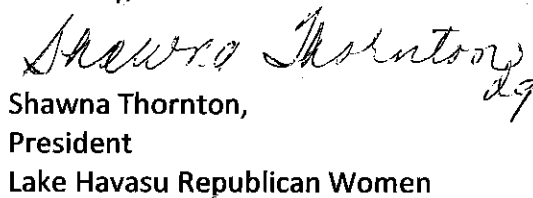 Shawna Thornton
dg
Shawna Thornton,
President
Lake Havasu Republican Women